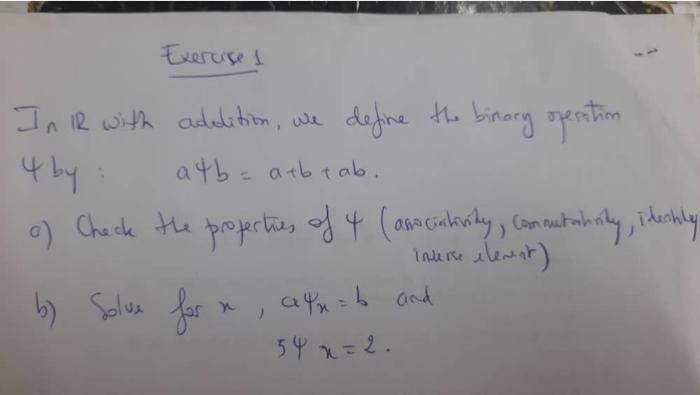 Exercise 1
In ℝ with addition, we define the binary operation
Ψ by : aΨb = a+b+ab.
a) Check the properties of Ψ (associativity, commutativity, identity
inverse element)
b) Solve for x, aΨx = b and
5Ψx = 2.